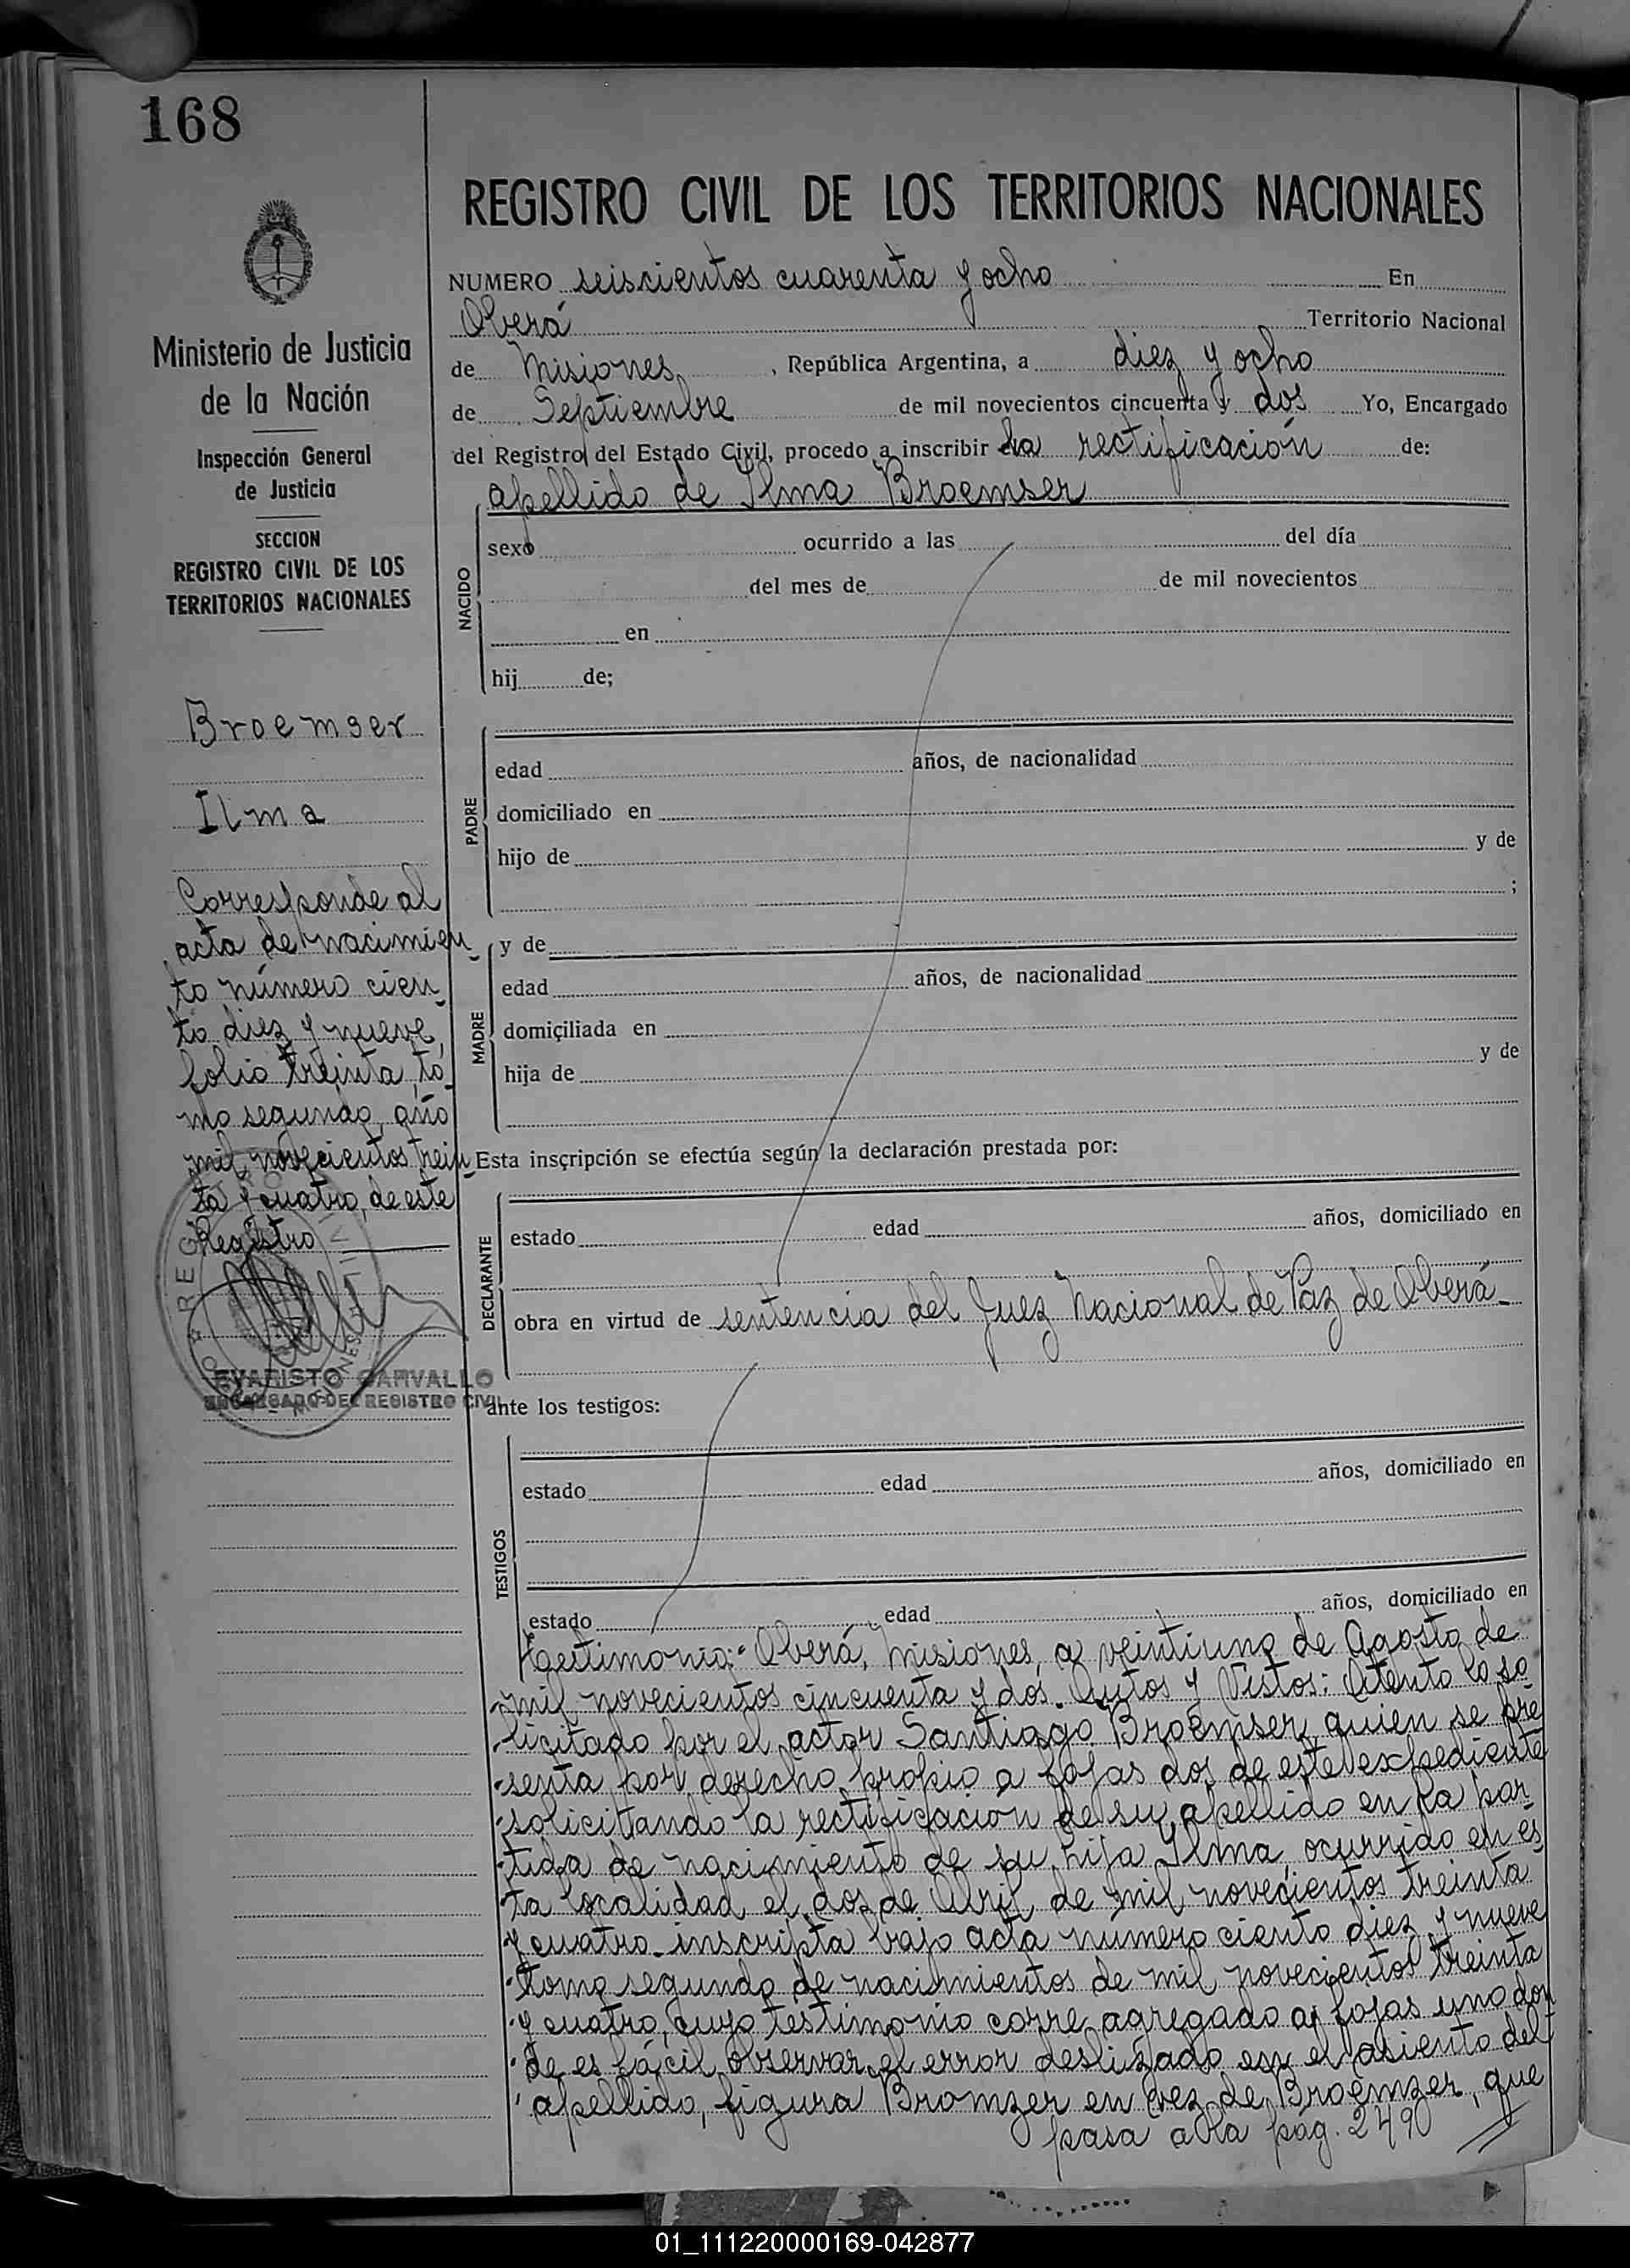 168
REGISTRO CIVIL DE LOS TERRITORIOS NACIONALES
Ministerio de Justicia
de la Nación
Inspección General
de Justicia
SECCION
REGISTRO CIVIL DE LOS
TERRITORIOS NACIONALES
Broemser
Ilma
Corresponde al
acta de nacimien-
to número cien-
to diez y nueve,
folio treinta, to-
mo segundo, año
mil novecientos trein-
ta y cuatro, de este
Registro
EVARISTO CARVALLO
ENCARGADO DEL REGISTRO CIVIL
NUMERO seiscientos cuarenta y ocho En
Oberá Territorio Nacional
de Misiones, República Argentina, a diez y ocho
de Septiembre de mil novecientos cincuenta y dos Yo, Encargado
del Registro del Estado Civil, procedo a inscribir la rectificación de:
apellido de Ilma Broemser
NACIDO
sexo ocurrido a las del día
del mes de de mil novecientos
en
hij de;
PADRE
edad años, de nacionalidad
domiciliado en
hijo de y de
;
MADRE
y de
edad años, de nacionalidad
domiciliada en
hija de y de
Esta inscripción se efectúa según la declaración prestada por:
DECLARANTE
estado edad años, domiciliado en
obra en virtud de sentencia del Juez Nacional de Paz de Oberá
ante los testigos:
TESTIGOS
estado edad años, domiciliado en
estado edad años, domiciliado en
Testimonio:" Oberá, Misiones, a veintiuno de Agosto de
"mil novecientos cincuenta y dos. Autos y Vistos: Atento lo so-
"licitado por el actor Santiago Broemser, quien se pre
"senta por derecho propio a fojas dos de este expediente
"solicitando la rectificación de su apellido en la par-
"tida de nacimiento de su hija Ilma, ocurrido en es-
"ta localidad el dos de Abril de mil novecientos treinta
"y cuatro inscripta bajo acta número ciento diez y nueve
"tomo segundo de nacimientos de mil novecientos treinta
"y cuatro, cuyo testimonio corre agregado a fojas uno don
"de es fácil observar el error deslizado en el asiento del
"apellido, figura Bromzer en vez de Broemzer, que
pasa a la pág. 249
01_111220000169-042877